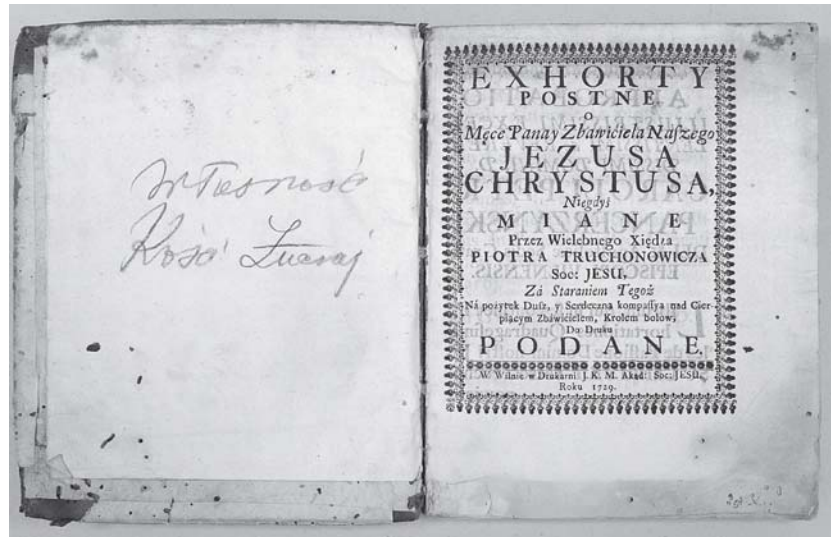 Własność
Kość
EXHORTY
POSTNE
O
Męce Pana y Zbawićiela Naſzego
JEZUSA
CHRYSTUSA,
Niegdyś
MIANE
Przez Wielebnego Xiędza
PIOTRA TRUCHONOWICZA
Soc: JESU,
Zá Staraniem Tegoż
Ná pożytek Dusz, y Serdeczna kompaſſya nad Cier-
piącym Zbáwićielem, Krolem bolow,
Do Druku
PODANE,
W Wilnie w Drukarni J. K. M. Akad: Soc: JESU,
Roku 1729.